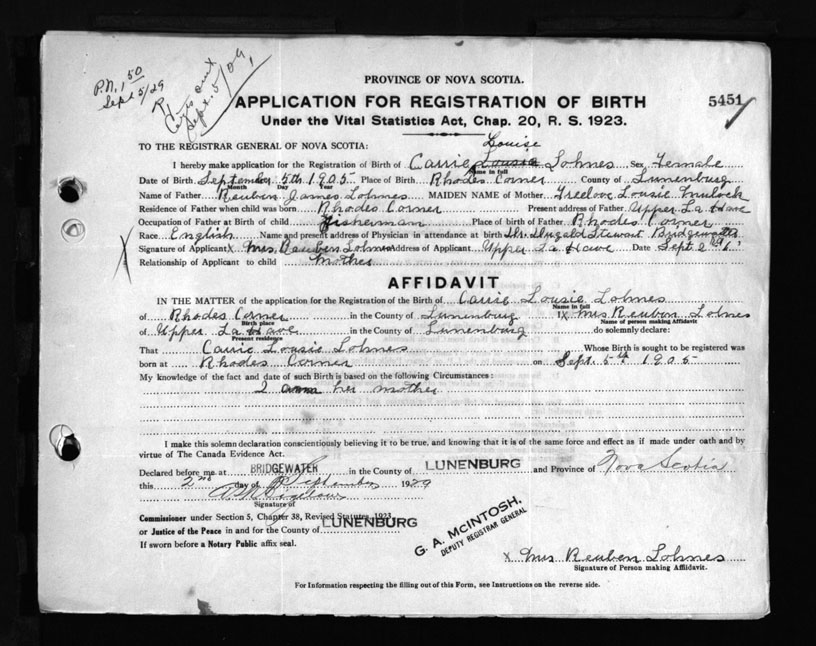 P.N. 1 50
Sept 5/29
Sept. 5/09
PROVINCE OF NOVA SCOTIA.
APPLICATION FOR REGISTRATION OF BIRTH
5451
Under the Vital Statistics Act, Chap. 20, R. S. 1923.
TO THE REGISTRAR GENERAL OF NOVA SCOTIA:
Louise
I hereby make application for the Registration of Birth of Carrie Lousie Lohnes Sex Female
Name in full
Date of Birth September 5th 1905 Place of Birth Rhodes Corner County of Lunenburg
Month Day Year
Name of Father Reuben James Lohnes MAIDEN NAME of Mother Freelove Lousie
Residence of Father when child was born Rhodes Corner Present address of Father Upper La Have
Occupation of Father at Birth of child Fisherman Place of birth of Father Rhodes Corner
Race English Name and present address of Physician in attendance at birth Dr. Dugald Stewart Bridgewater
Signature of Applicant X Mrs Reuben Lohnes Address of Applicant Upper La Have Date Sept 2
Relationship of Applicant to child Mother
AFFIDAVIT
IN THE MATTER of the application for the Registration of the Birth of Carrie Lousie Lohnes
Name in full
of Rhodes Corner in the County of Lunenburg I X Mrs Reuben Lohnes
Birth place Name of person making Affidavit
of Upper La Have in the County of Lunenburg do solemnly declare:
Present residence
That Carrie Lousie Lohnes Whose Birth is sought to be registered was
born at Rhodes Corner on Sept. 5th 1905
My knowledge of the fact and date of such Birth is based on the following Circumstances:
I am her mother
I make this solemn declaration conscientiously believing it to be true, and knowing that it is of the same force and effect as if made under oath and by
virtue of The Canada Evidence Act.
Declared before me at BRIDGEWATER in the County of LUNENBURG and Province of Nova Scotia
this 2nd day of September 1929
Signature of
Commissioner under Section 5, Chapter 38, Revised Statutes, 1923
or Justice of the Peace in and for the County of LUNENBURG
If sworn before a Notary Public affix seal.
G. A. McINTOSH,
DEPUTY REGISTRAR GENERAL
X Mrs Reuben Lohnes
Signature of Person making Affidavit.
For Information respecting the filling out of this Form, see Instructions on the reverse side.